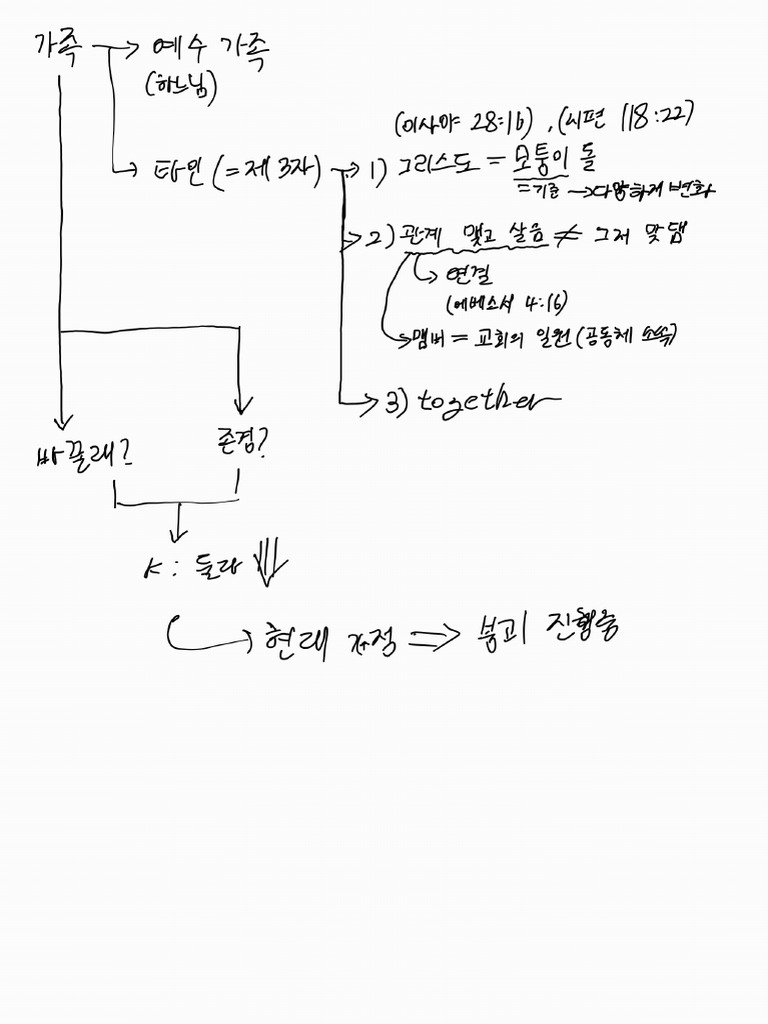 가족 → 예수 가족
(하느님)
(이사야 28:16), (시편 118:22)
타인 (=제3자) → 1) 그리스도 = 모퉁이 돌
=기준 → 다양하게 변화
2) 관계 맺고 살음 ≠ 그저 맞댐
연결
(에베소서 4:16)
멤버 = 교회의 일원 (공동체 소속)
3) together
바꿀래? 존경?
K: 둘다
현대 가정 ⇒ 붕괴 진행중